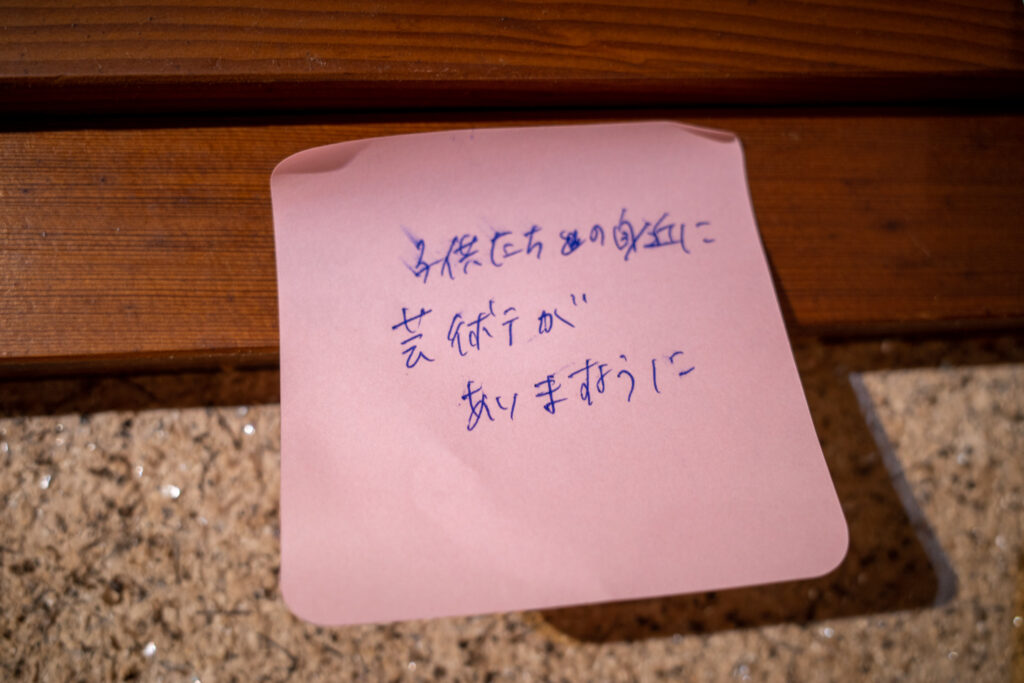 子供たちの身近に
芸術が
ありますように